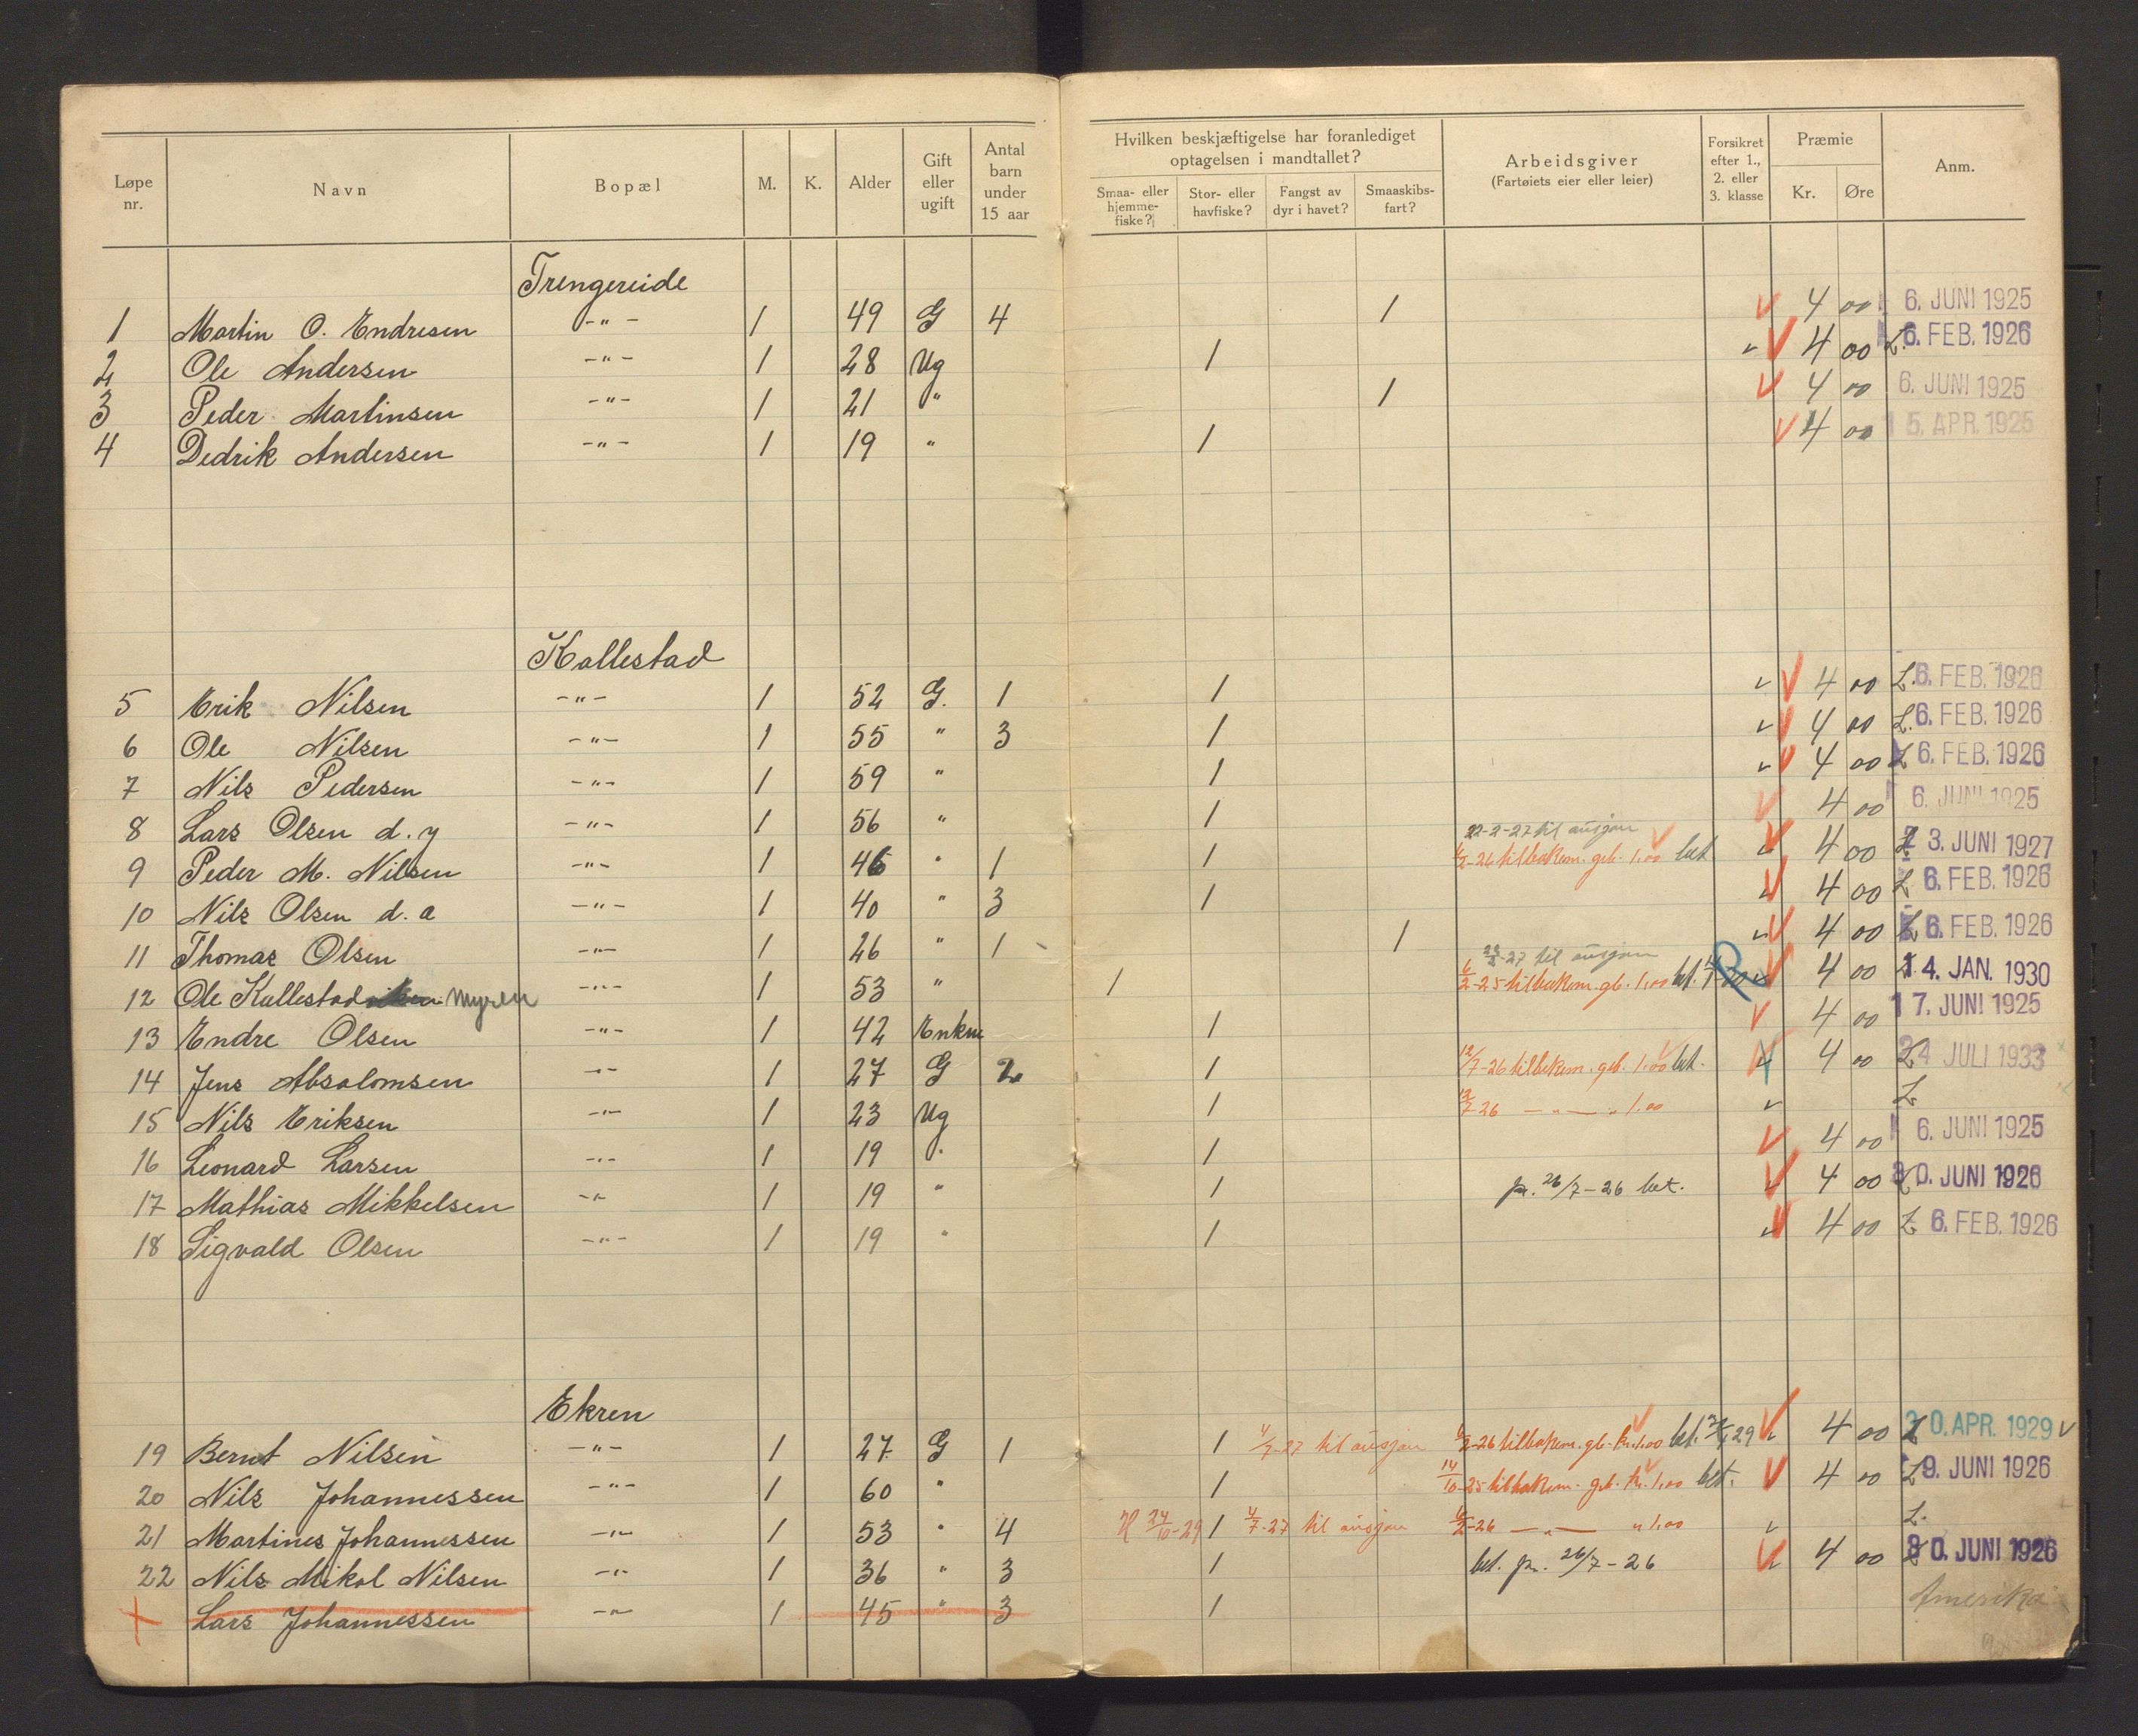 Løpe nr. Navn Bopæl M. K. Alder Gift eller ugift Antal barn under 15 aar Hvilken beskjæftigelse har foranlediget optagelsen i mandtallet? Smaa- eller hjemmefiske? Stor- eller havfiske? Fangst av dyr i havet? Smaaskibsfart? Arbeidsgiver (Fartøiets eier eller leier) Forsikret efter 1., 2. eller 3. klasse Præmie Kr. Øre Anm.
Trengereide
1 Martin O. Endresen -"- 1 49 G 4 1 4 00 6. JUNI 1925
2 Ole Andersen -"- 1 28 Ug 1 4 00 L. 6. FEB. 1926
3 Peder Martinsen -"- 1 21 " 1 4 00 6. JUNI 1925
4 Dedrik Andersen -"- 1 19 " 1 4 00 15. APR. 1925
Kallestad
5 Erik Nilsen -"- 1 52 G. 1 1 4 00 L. 6. FEB. 1926
6 Ole Nilsen -"- 1 55 " 3 1 4 00 L. 6. FEB. 1926
7 Nils Pedersen -"- 1 59 " 1 4 00 L 6. FEB. 1926
8 Lars Olsen d. y -"- 1 56 " 1 4 00 6. JUNI 1925
22-2-27 til
9 Peder M. Nilsen -"- 1 46 " 1 1 tilbakem. geb. 1.00 bet 4 00 3. JUNI 1927
10 Nils Olsen d. a -"- 1 40 " 3 1 4 00 L 6. FEB. 1926
11 Thomas Olsen -"- 1 26 " 1 1 4 00 L 6. FEB. 1926
27 til
12 Ole Kallestad Myren -"- 1 53 " 1 6/2-25 tilbakem. gb. 1.00 bet. 4 00 14. JAN. 1930
13 Endre Olsen -"- 1 42 Enkm 1 4 00 17. JUNI 1925
14 Jens Absalomsen -"- 1 27 G 2 1 12/7-26 tilbakem. geb. 1.00 bet. 4 00 L 24 JULI 1933
15 Nils Eriksen -"- 1 23 Ug 1 12/7 26 -"- " 1.00 L
16 Leonard Larsen -"- 1 19 " 1 4 00 6. JUNI 1925
17 Mathias Mikkelsen -"- 1 19 " 1 pr. 26/7-26 bet. 4 00 30. JUNI 1926
18 Sigvald Olsen -"- 1 19 " 1 4 00 L 6. FEB. 1926
Ekren
19 Bernt Nilsen -"- 1 27 G 1 1 4/7-27 til 6/2-26 tilbakem. gb. Kr. 1.00 bet. 29 4 00 L 30. APR. 1929
20 Nils Johannessen -"- 1 60 " 1 14/10-25 tilbakem. geb. Kr. 1.00 bet. 4 00 L 19. JUNI 1926
21 Martines Johannessen -"- 1 53 " 4 24/10-29 1 4/7-27 til 6/2-26 -"- " 1.00 L.
22 Nils Mikal Nilsen -"- 1 36 " 3 1 bet. pr. 26/7-26 4 00 L 30. JUNI 1926
Lars Johannessen -"- 1 45 " 3 1 Amerika